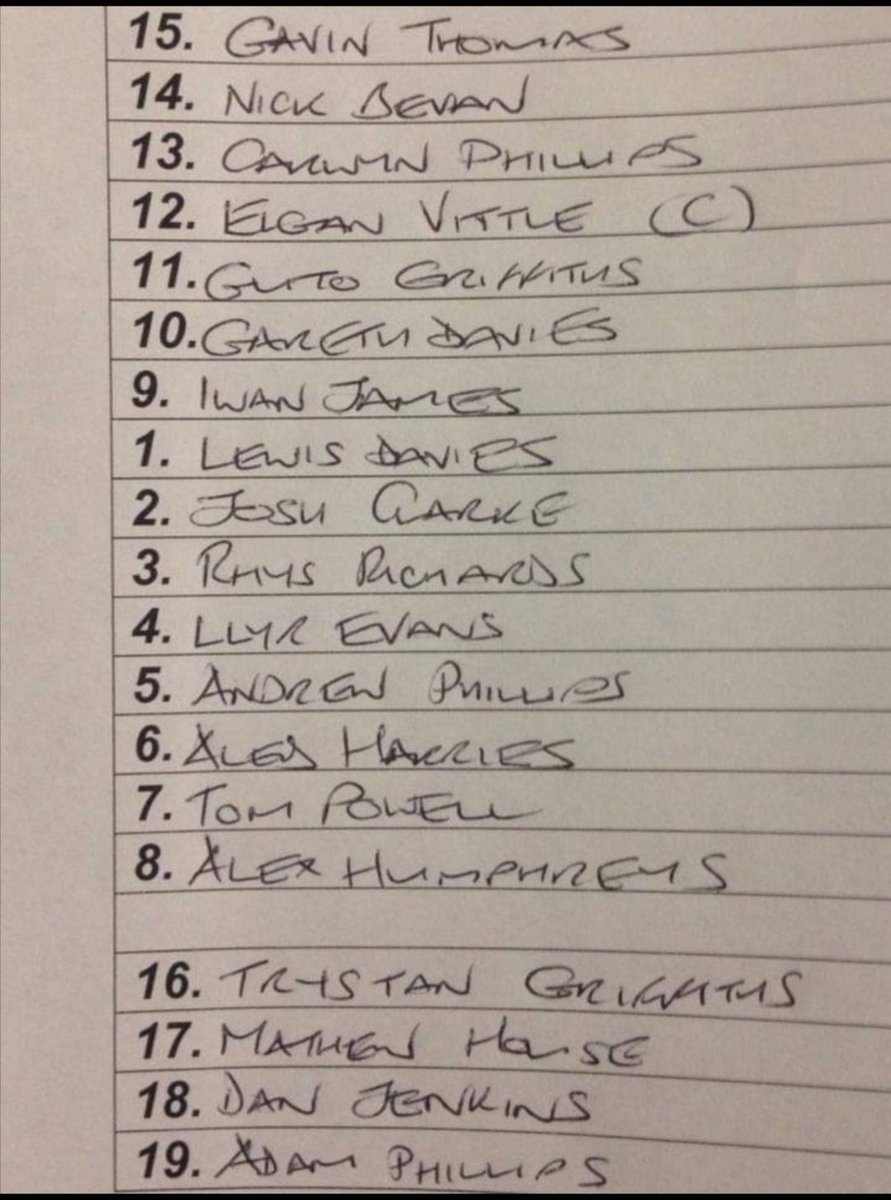 15. GAVIN THOMAS
14. NICK BEVAN
13. CARWYN PHILLIPS
12. ELGAN VITTLE (C)
11. GUTO GRIFFITHS
10. GARETH DAVIES
9. IWAN JAMES
1. LEWIS DAVIES
2. JOSH CLARKE
3. RHYS RICHARDS
4. LLYR EVANS
5. ANDREW PHILLIPS
6. HARRIES
7. TOM POWELL
8. ALEX HUMPHREYS
16. TRYSTAN GRIFFITHS
17. MATHEW HOUSE
18. DAN JENKINS
19. ADAM PHILLIPS